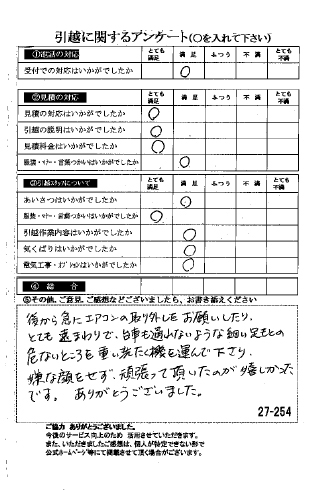 引越に関するアンケート(○を入れて下さい)
①電話の対応 とても満足 満 足 ふつう 不 満 とても不満
受付での対応はいかがでしたか ○
②見積の対応 とても満足 満 足 ふつう 不 満 とても不満
見積の対応はいかがでしたか ○
引越の説明はいかがでしたか ○
見積料金はいかがでしたか ○
服装・マナー・言葉つかいはいかがでしたか ○
③引越スタッフについて とても満足 満 足 ふつう 不 満 とても不満
あいさつはいかがでしたか ○
服装・マナー・言葉つかいはいかがでしたか ○
引越作業内容はいかがでしたか ○
気くばりはいかがでしたか ○
電気工事・オプションはいかがでしたか ○
④ 総 合
⑤その他、ご意見、ご感想などございましたら、お書き添えください
後から急にエアコンの取り外しをお願いしたり、
とても遠まわりで、台車も通れないような細い足もとの
危ないところを重い洗たく機を運んで下さり、
嫌な顔をせず、頑張って頂いたのが嬉しかった
です。 ありがとうございました。
27-254
ご協力 ありがとうございました。
今後のサービス向上のため 活用させていただきます。
また、いただきましたご感想は、個人が特定できない形で
公式ホームページ等にて掲載させて頂く場合がございます。